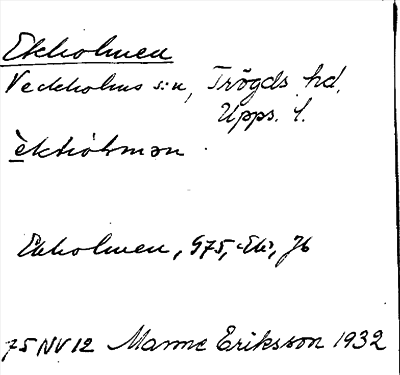 Ekholmen
Veckholms s:n, Trögds hd.
Upps. l.
Ekholmen, 975,
75 NV 12 Manne Eriksson 1932